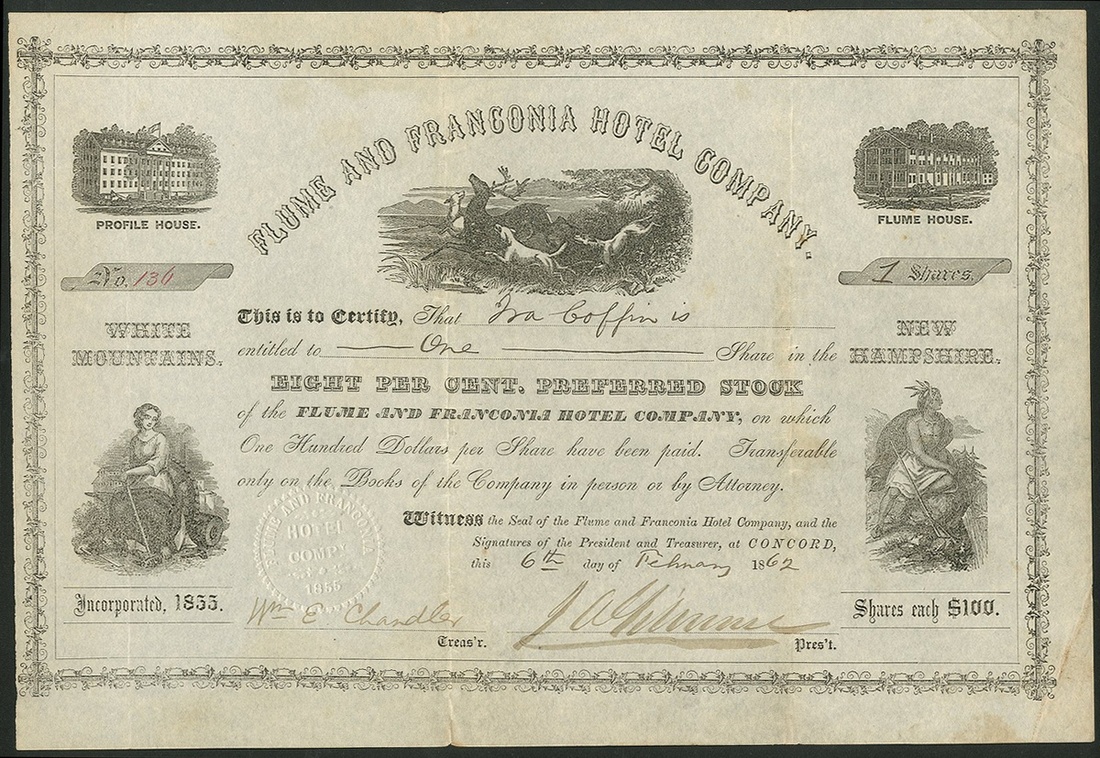 FLUME AND FRANCONIA HOTEL COMPANY.
PROFILE HOUSE.
FLUME HOUSE.
No. 136
1 Shares.
WHITE
MOUNTAINS.
NEW
HAMPSHIRE.
This is to Certify, That Ira Coffin is
entitled to One Share in the
EIGHT PER CENT. PREFERRED STOCK
of the FLUME AND FRANCONIA HOTEL COMPANY, on which
One Hundred Dollars per Share have been paid. Transferable
only on the Books of the Company in person or by Attorney.
Witness the Seal of the Flume and Franconia Hotel Company, and the
Signatures of the President and Treasurer, at CONCORD,
this 6th day of February 1862
FLUME AND FRANCONIA
HOTEL
COMPY
1855
Incorporated, 1855.
Shares each $100.
Wm E Chandler
Treas'r.
J A Gilmore
Pres't.